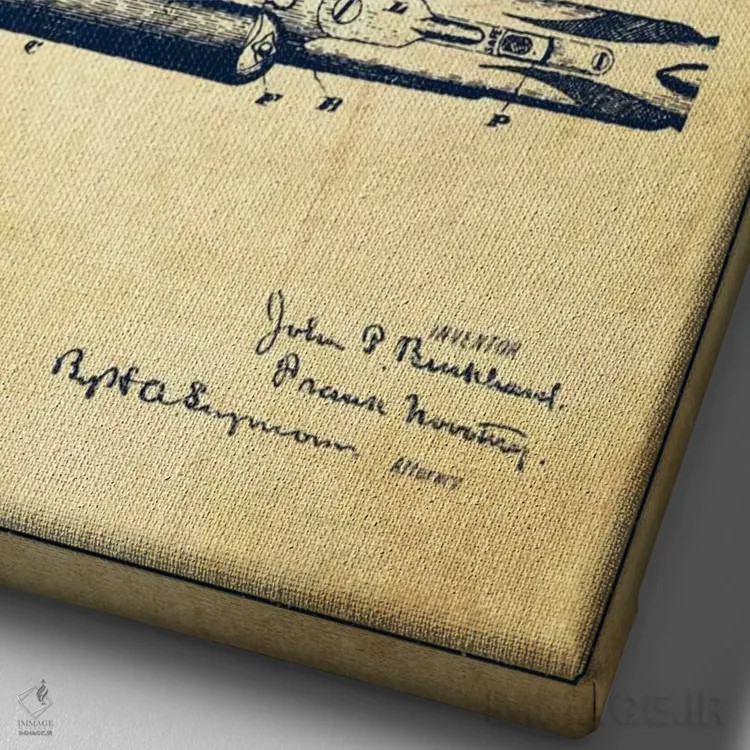 C
L
SAFE
F B P
INVENTOR
John P. Burkhard.
Frank Novotny.
By H A Seymour
Attorney
IMMAGE
IMMAGE.IR
IMMAGE.IR